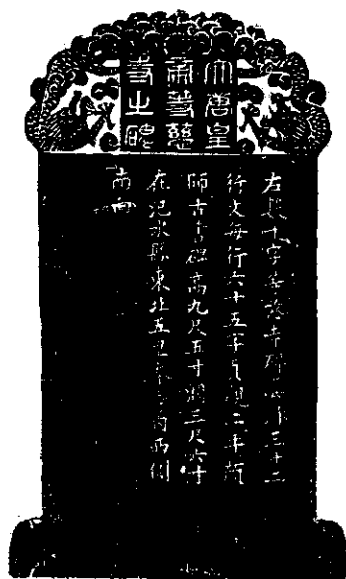 大唐皇
帝等慈
寺之碑
右題字等慈寺碑三十二
行文每行六十五字貞觀二年顏
師古書碑高九尺五寸濶三尺六寸
在汜水縣東北五里內西側
南向